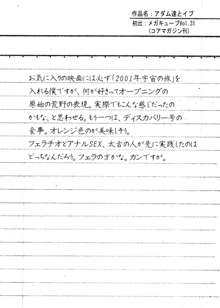 作品名：アダム達とイブ
初出：メガキューブVol.31
(コアマガジン刊)
お気に入りの映画には必ず「2001年宇宙の旅」を
入れる僕ですが、何が好きってオープニングの
原始の荒野の表現。実際でもこんな感じだったの
かもな、と思わせる。もう一つは、ディスカバリー号の
食事。オレンジ色のが美味しそう。
フェラチオとアナルSEX、太古の人が先に実践したのは
どっちなんだろう。フェラのオカな。カンですが。